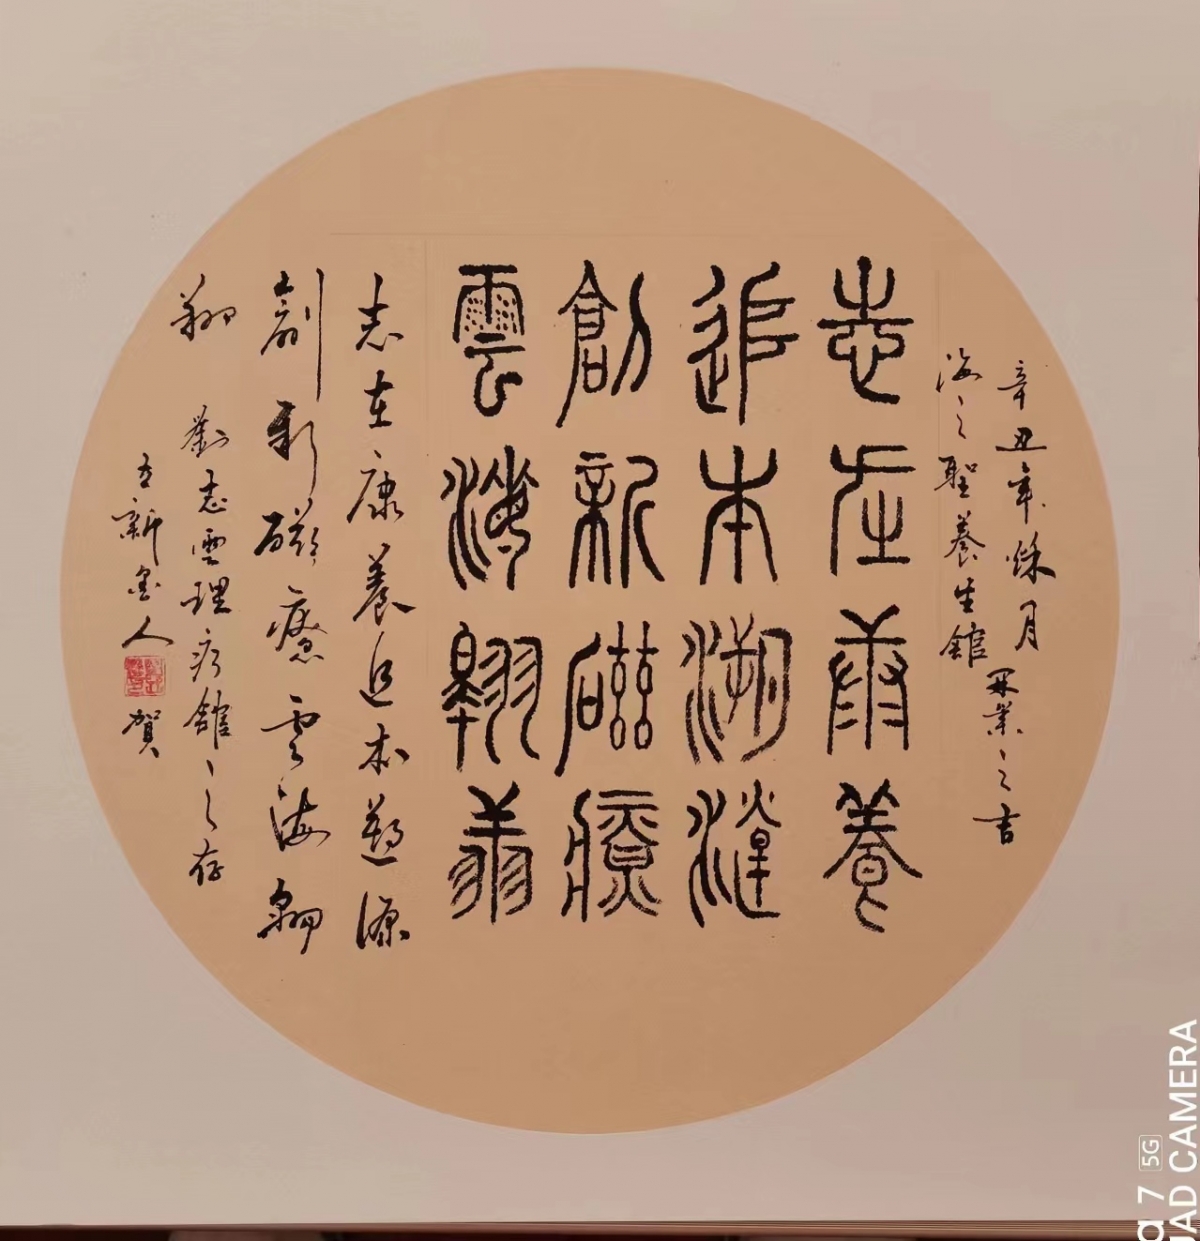 辛丑年烁月開業之吉
海之聖養生館
志在康養
追本溯源
創新磁療
雲海翱翔
志在康養追本遡源
創新磁療雲海翱
翔
劉志雲理疗館之存
墨人
賀
a 7 5G
AD CAMERA